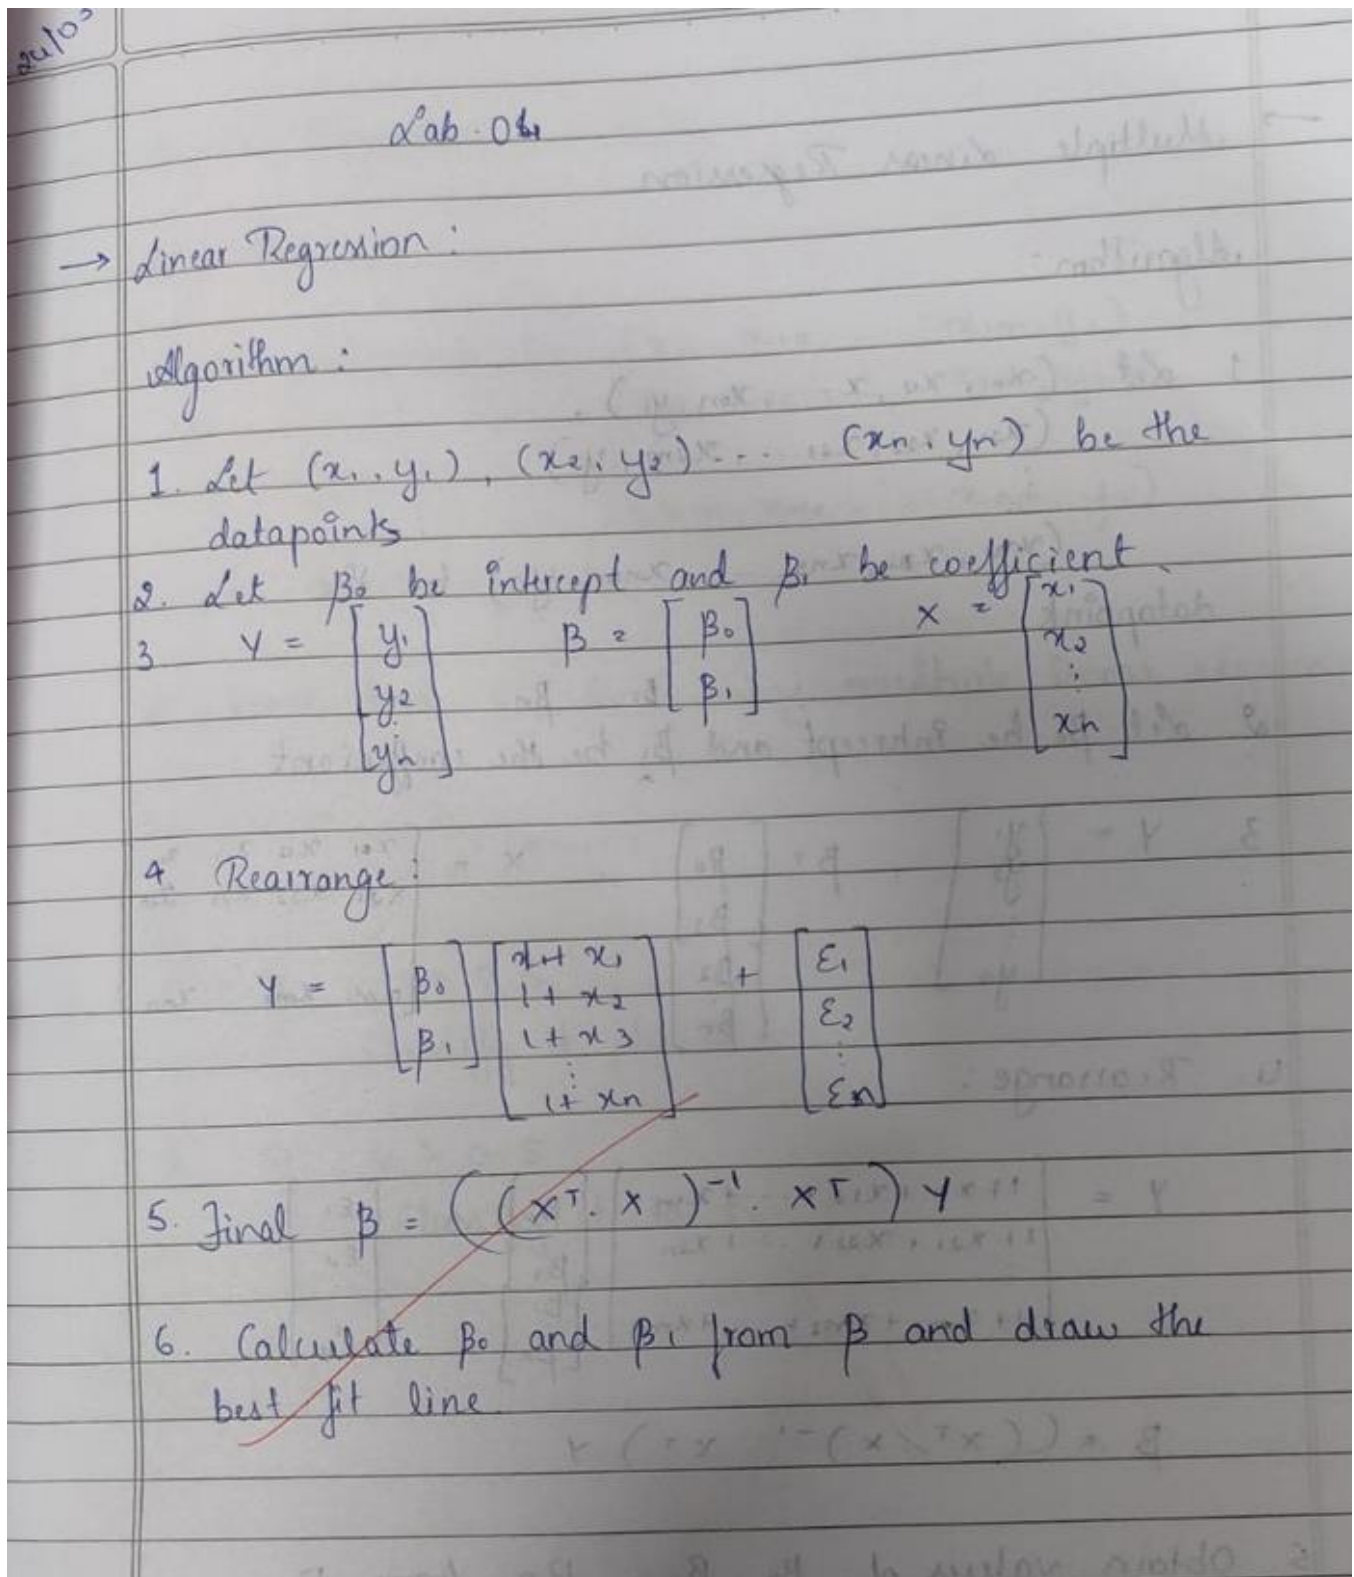 24/03
Lab-04
→ Linear Regression :
Algorithm :
1. Let (x₁, y₁), (x₂, y₂) ... (xn, yn) be the
datapoints
2. Let β₀ be intercept and β₁ be coefficient.
3 Y = [y₁ y₂ : yn] β = [β₀ β₁] X = [x₁ x₂ : xn]
4. Rearrange :
Y = [β₀ β₁] [1+ x₁ 1+ x₂ 1+ x3 : 1+ xn] + [ε₁ ε₂ : εn]
5. Final β = ((Xᵀ. X)⁻¹. Xᵀ) Y
6. Calculate β₀ and β₁ from β and draw the
best fit line.